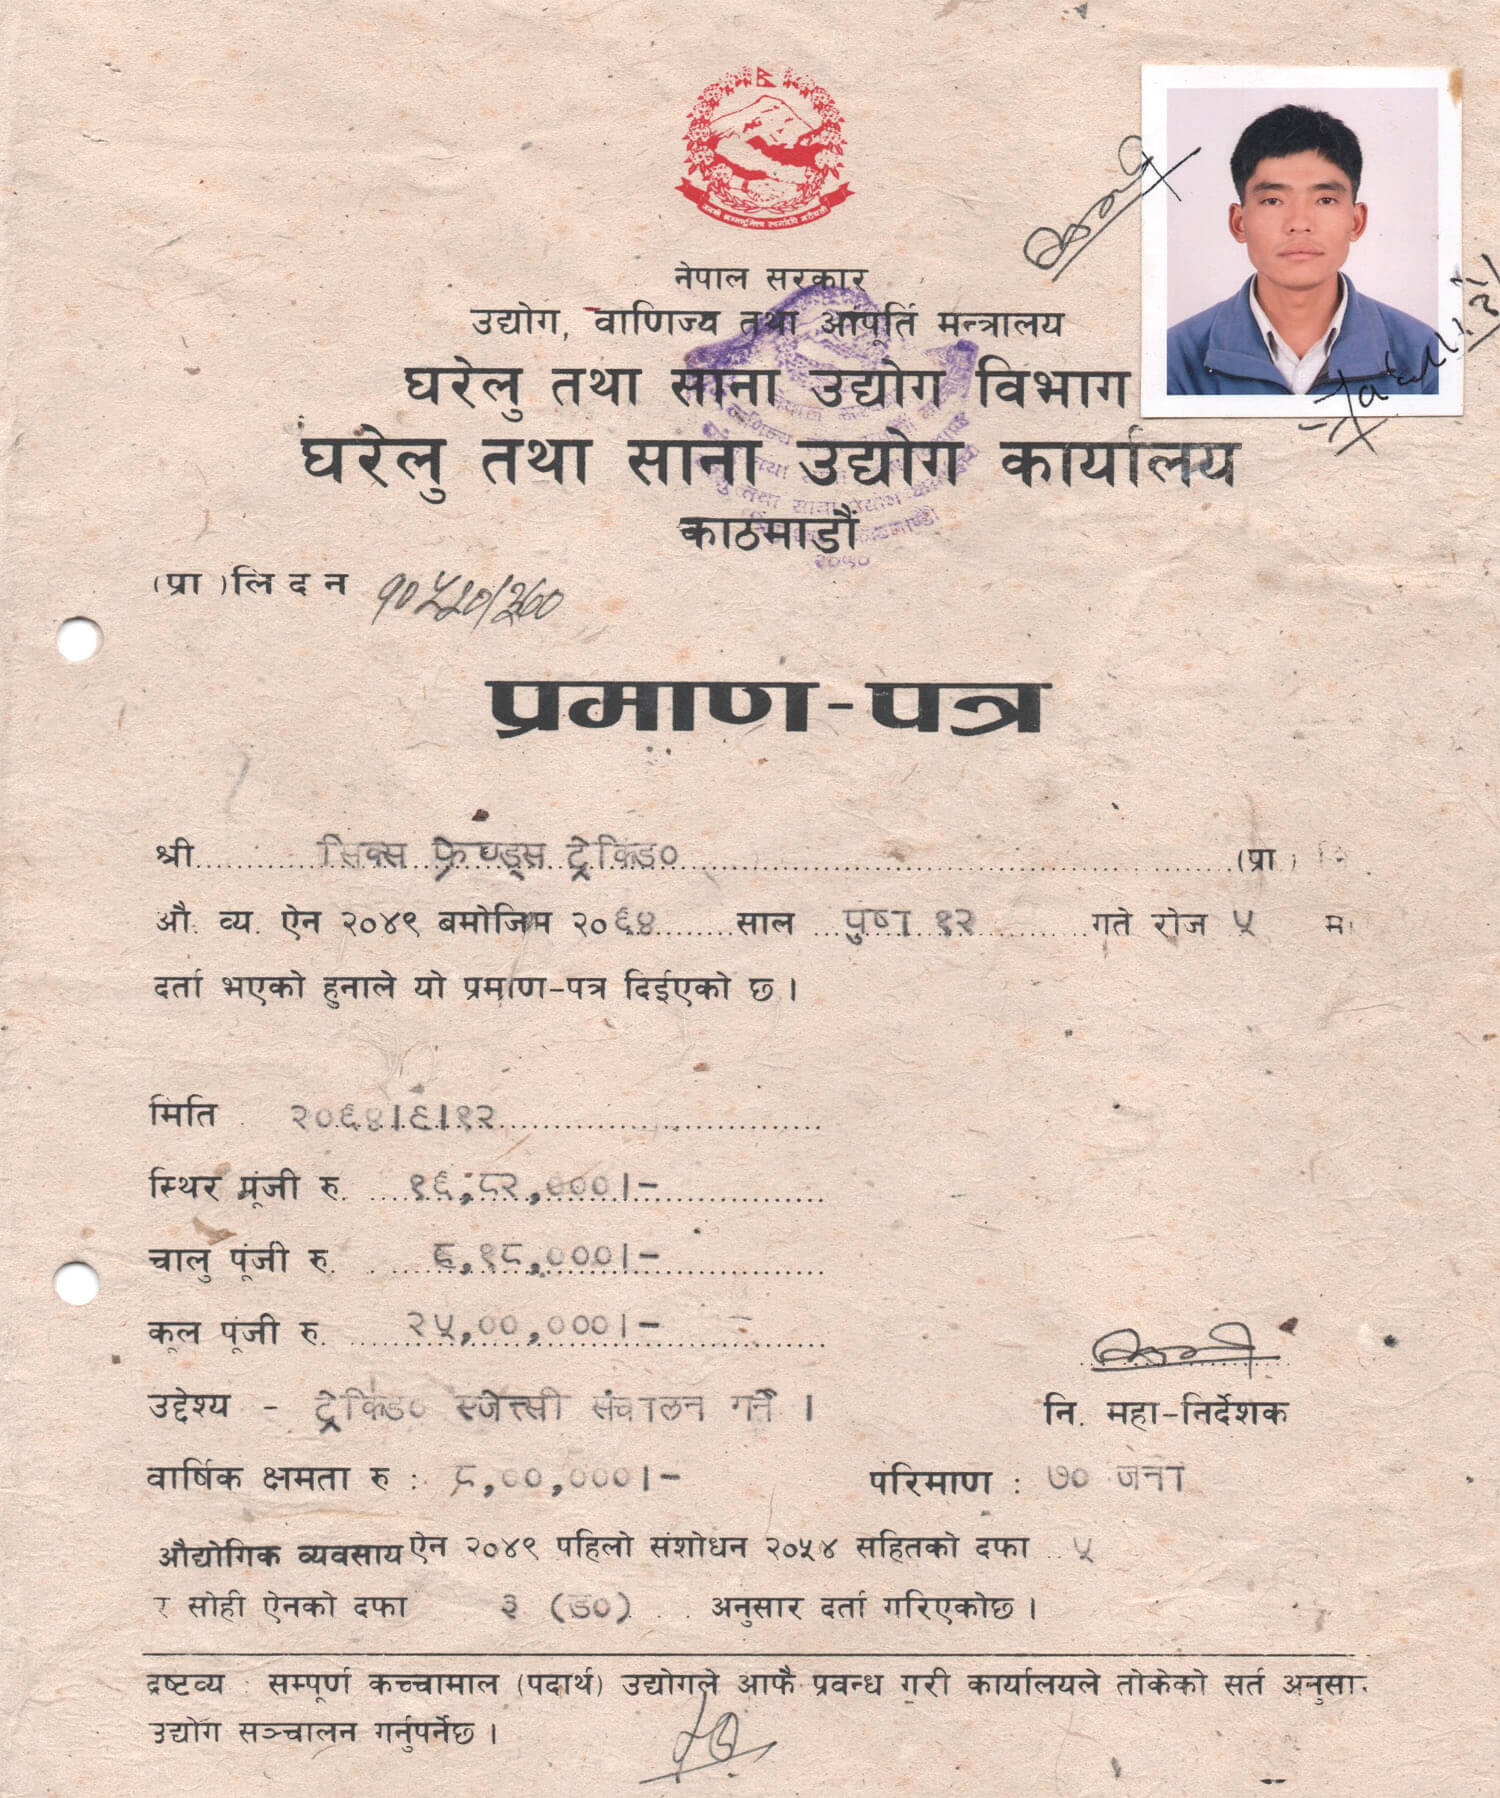 नेपाल सरकार
उद्योग, वाणिज्य तथा आपूर्ति मन्त्रालय
घरेलु तथा साना उद्योग विभाग
घरेलु तथा साना उद्योग कार्यालय
काठमाडौं
२०५०
(प्रा)लि द न
प्रमाण-पत्र
श्री सिक्स फ्रेण्ड्स ट्रेकिङ० (प्रा) लि
औ. व्य. ऐन २०४९ बमोजिम २०६४ साल पुष १२ गते रोज ५ मा
दर्ता भएको हुनाले यो प्रमाण-पत्र दिईएको छ ।
मिति २०६४।९।१२
स्थिर पूंजी रु. १६,८२,०००।-
चालु पूंजी रु. ८,१८,०००।-
कूल पूंजी रु. २५,००,०००।-
उद्देश्य - ट्रेकिङ० एजेन्सी संचालन गर्ने ।
नि. महा-निर्देशक
वार्षिक क्षमता रु : ८,००,०००।- परिमाण : ७० जना
औद्योगिक व्यवसाय ऐन २०४९ पहिलो संशोधन २०५४ सहितको दफा ५
र सोही ऐनको दफा ३ (ङ०) अनुसार दर्ता गरिएकोछ ।
द्रष्टव्य : सम्पूर्ण कच्चामाल (पदार्थ) उद्योगले आफै प्रवन्ध गरी कार्यालयले तोकेको सर्त अनुसा
उद्योग सञ्चालन गर्नुपर्नेछ ।